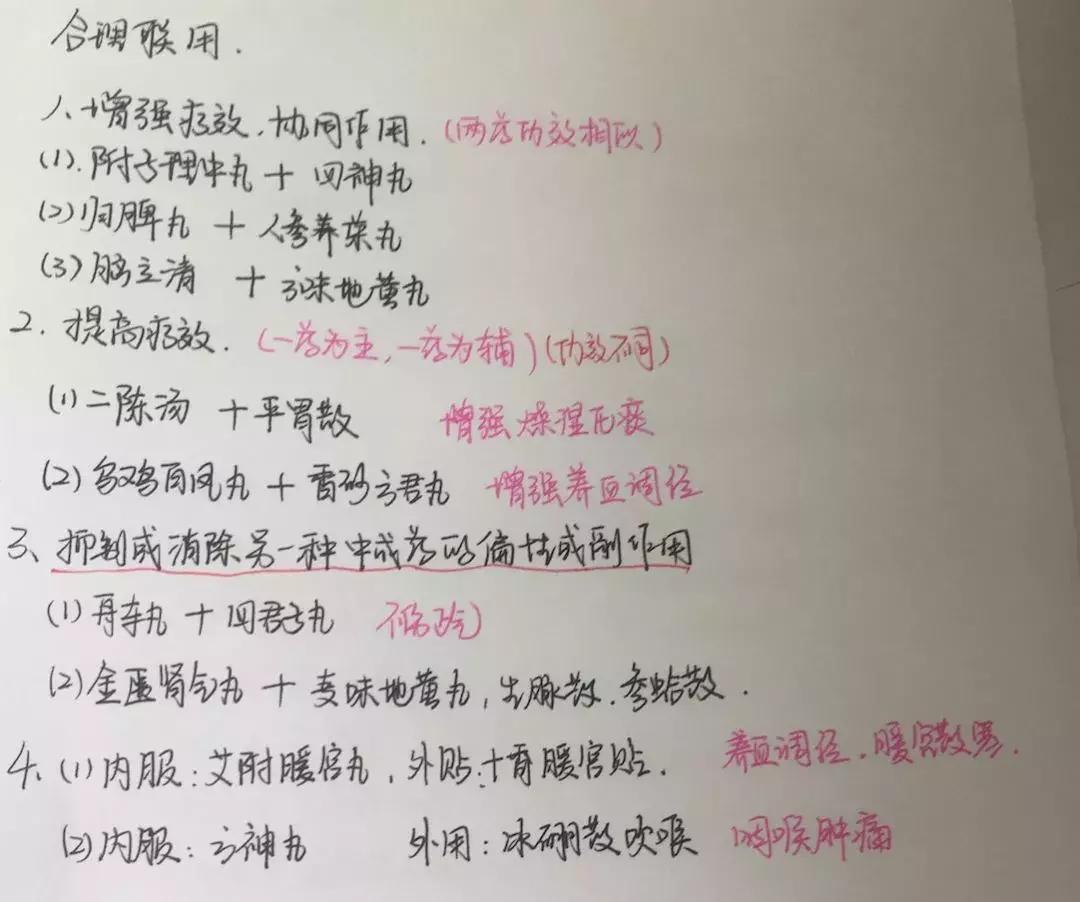 合理联用.
1、增强疗效.协同作用.(两药功效相似)
(1).附子理中丸 + 四神丸
(2)归脾丸 + 人参养荣丸
(3)脑立清 + 六味地黄丸
2.提高疗效.(一药为主,一药为辅)(功效不同)
(1)二陈汤 + 平胃散 增强燥湿化痰
(2)乌鸡白凤丸 + 香砂六君丸 增强养血调经
3、抑制或消除另一种中成药的偏性或副作用
(1)舟车丸 + 四君子丸 不伤正气)
(2)金匮肾气丸 + 麦味地黄丸,生脉散.参蛤散.
4、(1)内服:艾附暖宫丸,外贴:十香暖宫贴. 养血调经.暖宫散寒.
(2)内服:六神丸 外用:冰硼散吹喉 咽喉肿痛